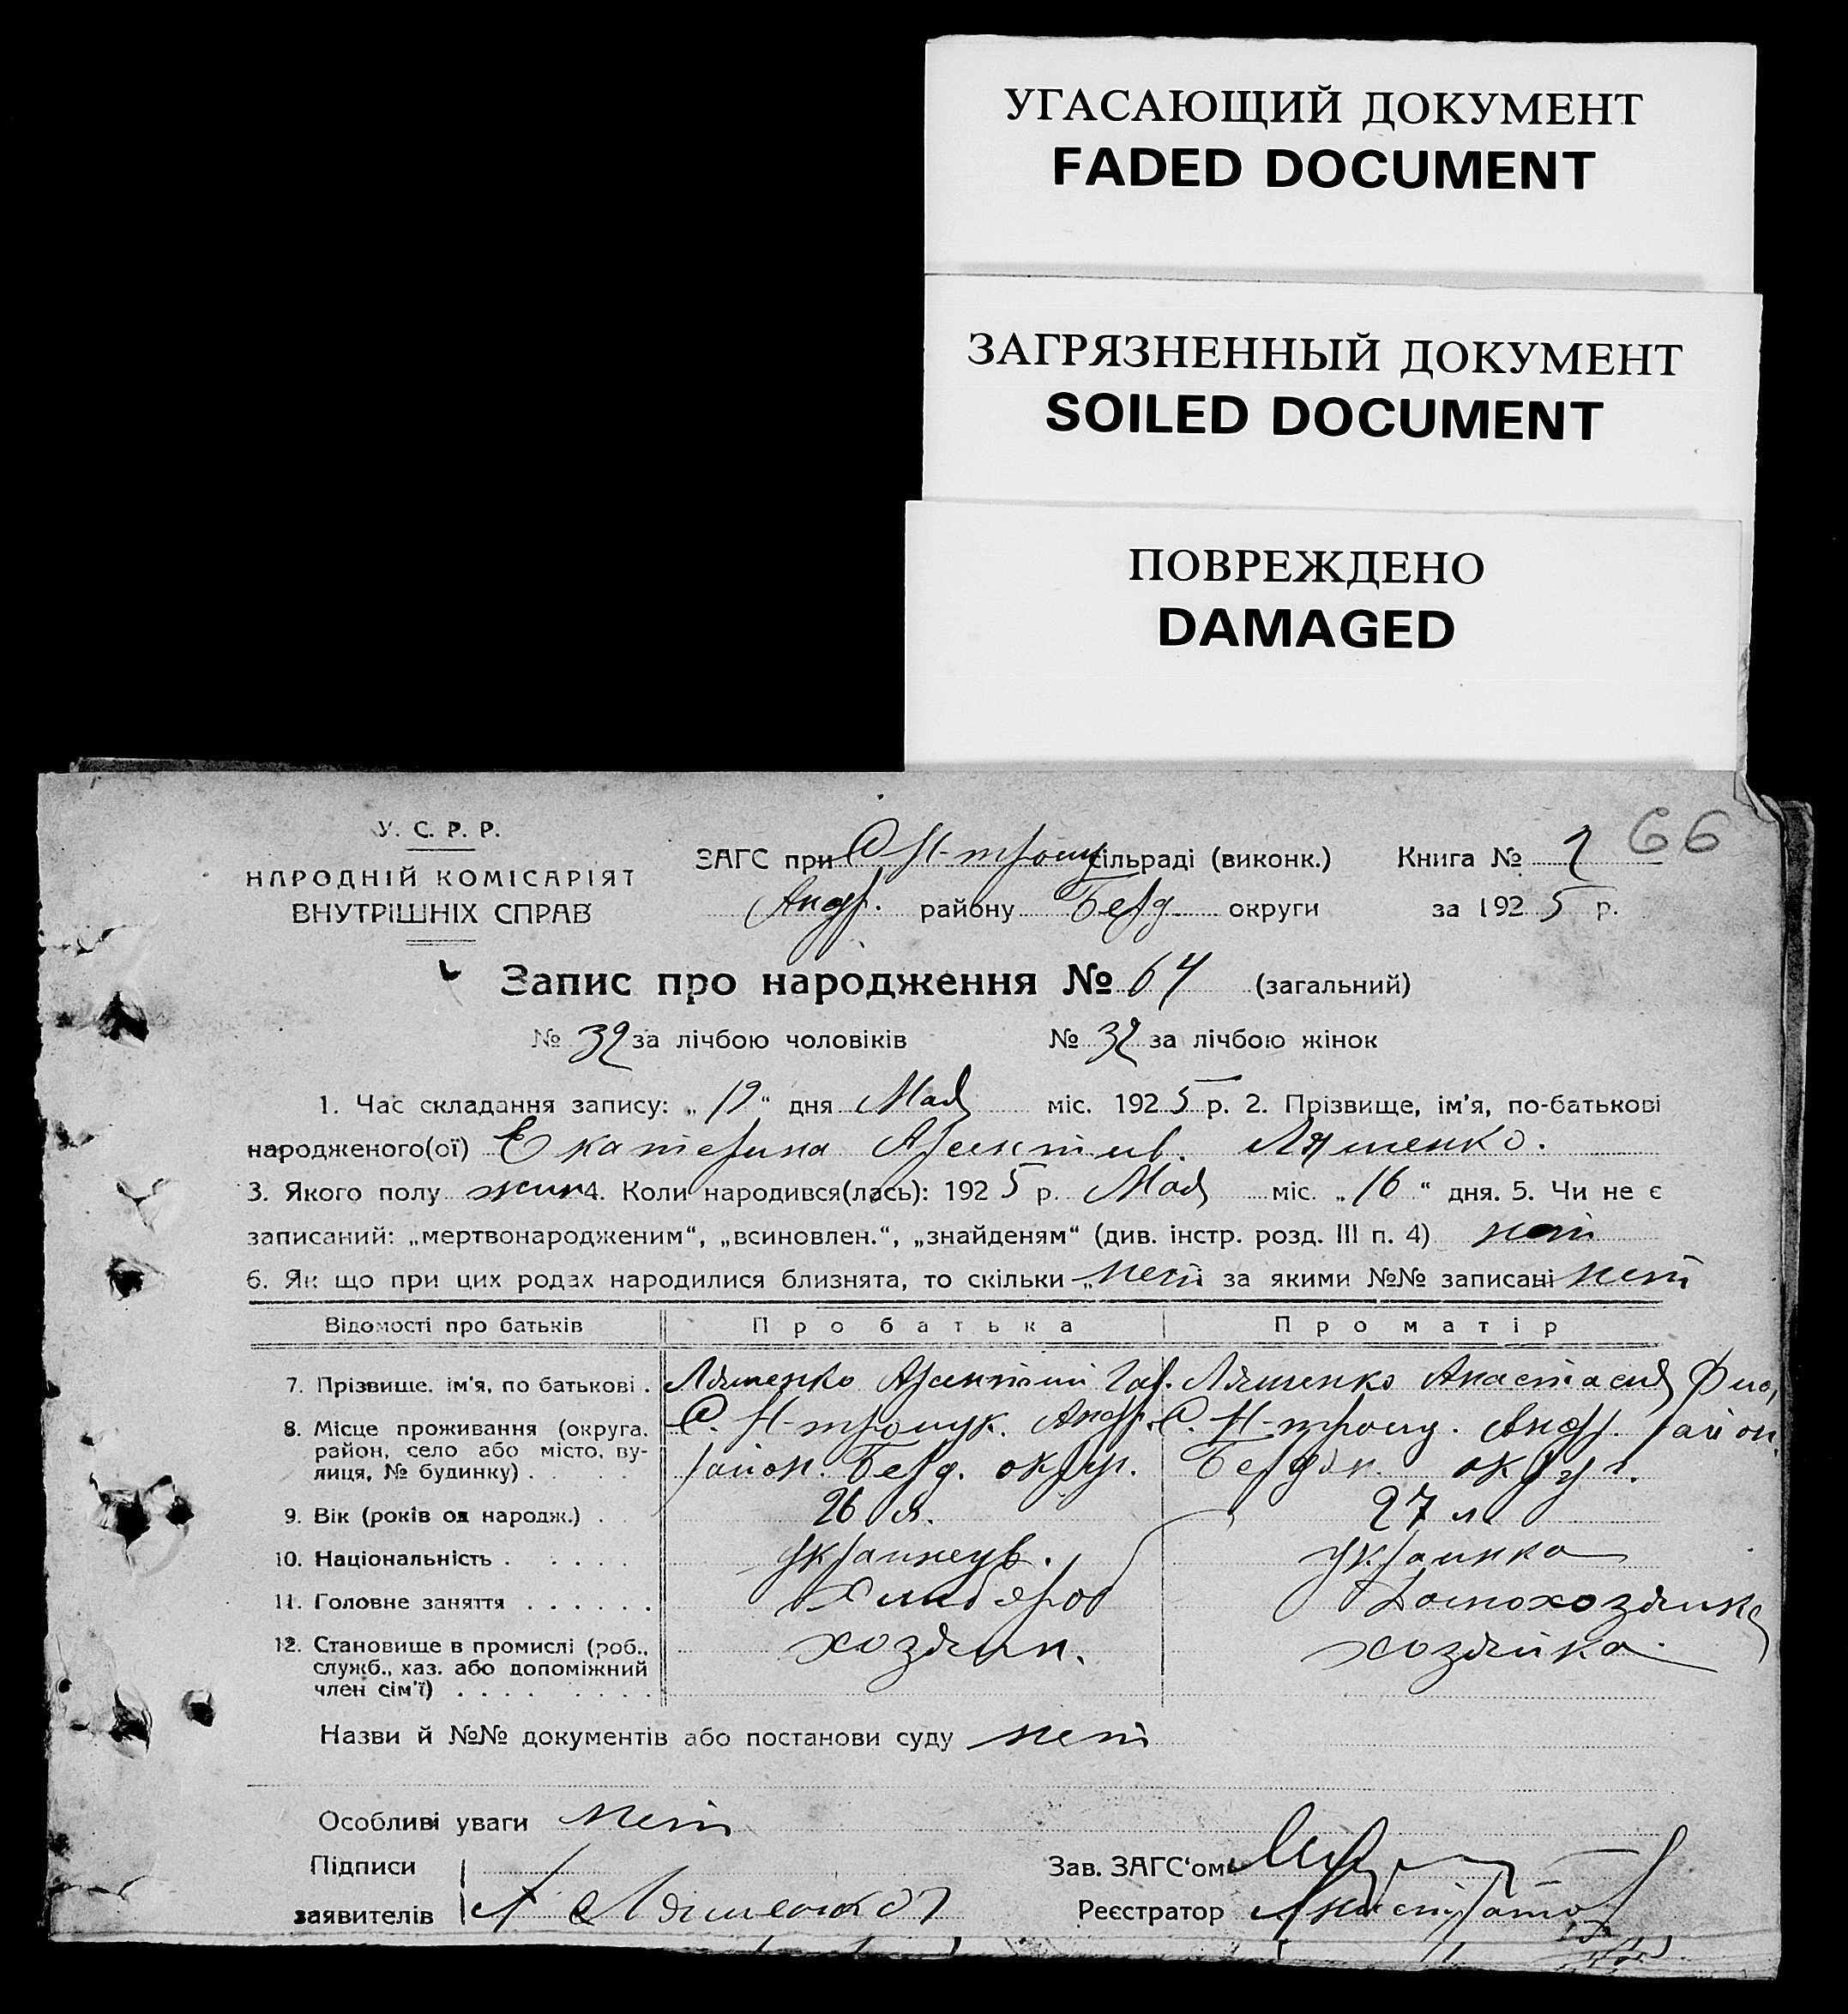 УГАСАЮЩИЙ ДОКУМЕНТ
FADED DOCUMENT
ЗАГРЯЗНЕННЫЙ ДОКУМЕНТ
SOILED DOCUMENT
ПОВРЕЖДЕНО
DAMAGED
66
У. С. Р. Р.
НАРОДНІЙ КОМІСАРІЯТ
ВНУТРІШНІХ СПРАВ
ЗАГС при С. Н-троицк сільраді (виконк.) Книга №
Андр. району Берд. округи за 1925 р.
Запис про народження № 64 (загальний)
№ 32 за лічбою чоловіків № 32 за лічбою жінок
1. Час складання запису: „19“ дня Мая міс. 1925 р. 2. Прізвище, ім'я, по-батькові
народженого(ої) Екатерина Арентив. Ляшенко.
3. Якого полу жин 4. Коли народився(лась): 1925 р. Мая міс. „16“ дня. 5. Чи не є
записаний: „мертвонародженим“, „всиновлен.“, „знайденям“ (див. інстр. розд. III п. 4) нет
6. Як що при цих родах народилися близнята, то скільки „нет за якими №№ записані нет
Відомості про батьків Про батька Про матір
7. Прізвище, ім'я, по батькові . Ляшенко Гав. Ляшенко Анастасия
8. Місце проживання (округа, район, село або місто, ву-
лиця, № будинку) . С. Н-троицк. Андр. район. Берд. округ. С. Н-троиц. Андр. район. Бердян. округ.
9. Вік (років од народж.) . 26 л. 27 л.
10. Національність . украинец. украинка
11. Головне заняття . хлибороб домохозяйка
12. Становище в промислі (роб., хозяин. хозяйка.
служб., хаз. або допоміжний
член сім'ї) .
Назви й №№ документів або постанови суду нет
Особливі уваги нет
Підписи Зав. ЗАГС'ом
заявителів Ляшенко Реєстратор